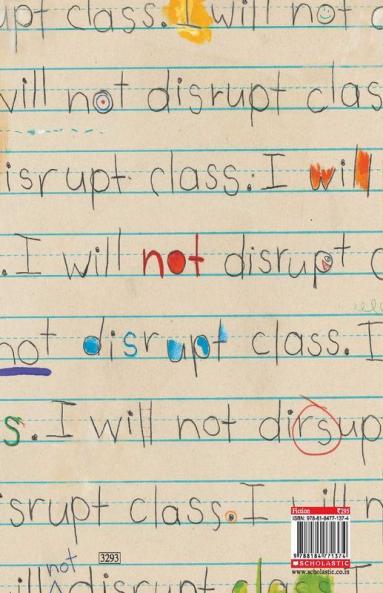 upt class. I will not d
will not disrupt clas
isrupt. class. I will
. I will not disrupt c
not disrupt class. I
s. I will not dirsup
isrupt class. I will n
not
will ^ disrupt class I
Fiction ₹295
ISBN: 978-81-8477-137-4
9788184771374
SCHOLASTIC
www.scholastic.co.in
3293